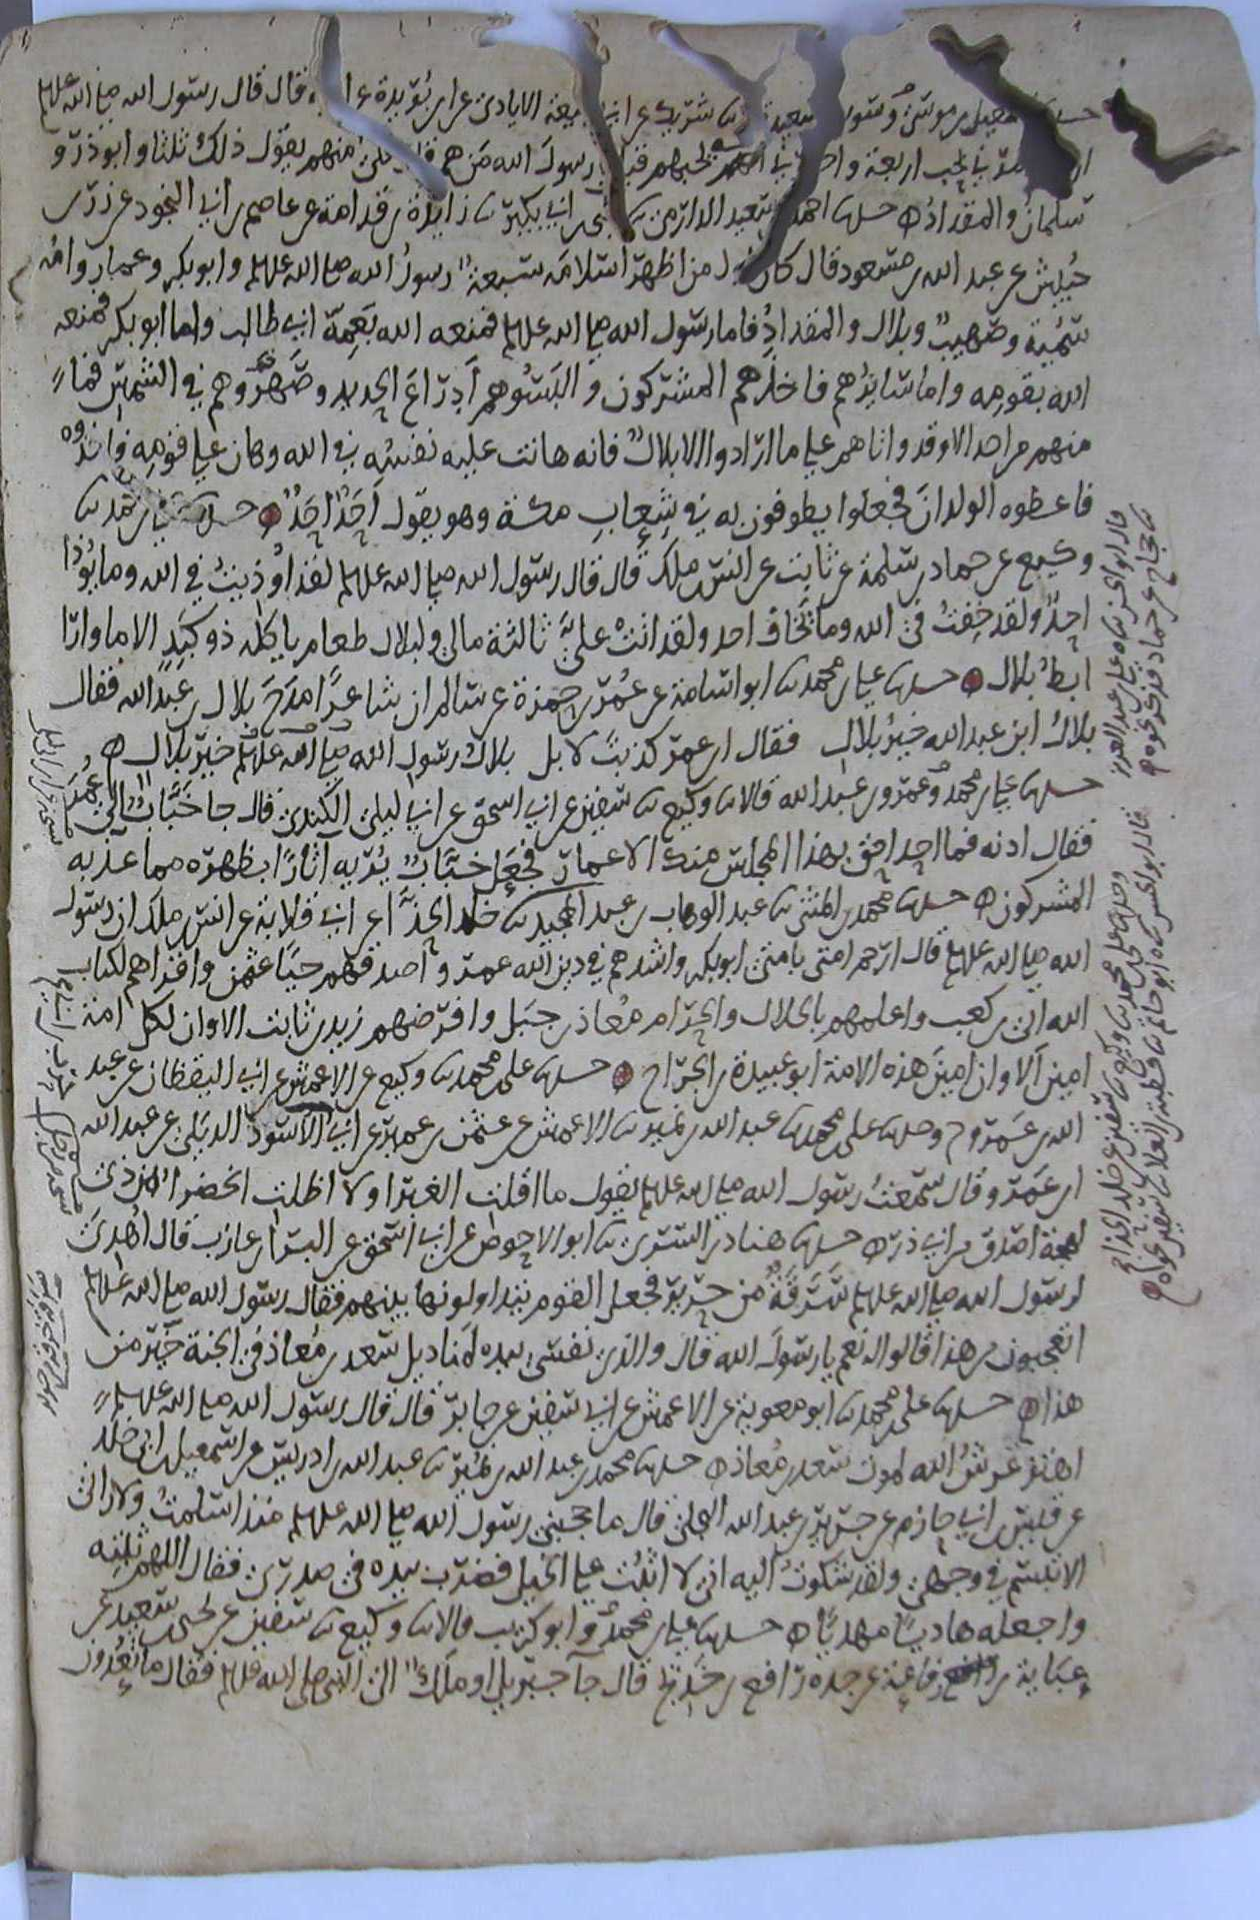 اسمعيل بن موسى وسويد بن سعيد شريك عن ابي ربيعة الايادي عن ابن بريدة عن قال قال رسول الله صلى الله عليه
بحب اربعة واخبرني انه يحبهم قيل رسول الله من هم قال علي منهم يقول ذلك ثلثا وابو ذر و
سلمان والمقداد حدثنا احمد بن سعيد الدارمي ثنا يحيى بن ابي بكير ثنا زايدة بن قدامة عن عاصم بن ابي النجود عن زر بن
حبيش عن عبد الله بن مسعود قال كان اول من اظهر اسلامه سبعة رسول الله صلى الله عليه وابو بكر وعمار وامه
سمية وصهيب وبلال والمقداد فاما رسول الله صلى الله عليه فمنعه الله بعمه ابي طالب واما ابو بكر فمنعه
الله بقومه واما سايرهم فاخذهم المشركون والبسوهم ادراع الحديد وصهروهم في الشمس فما
منهم من احد الا وقد واتاهم على ما ارادوا الا بلال فانه هانت عليه نفسه في الله وهان على قومه فاخذوه
فاعطوه الولدان فجعلوا يطوفون به في شعاب مكة وهو يقول احد احد حدثنا علي بن محمد ثنا
وكيع عن حماد بن سلمة عن ثابت عن انس بن ملك قال قال رسول الله صلى الله عليه لقد اوذيت في الله وما يوذا
احد ولقد خفت في الله وما يخاف احد ولقد اتت علي ثالثة مالي ولبلال طعام ياكله ذو كبد الا ما وارا
ابط بلال حدثنا علي بن محمد ثنا ابو اسامة عن عمر بن حمزة عن سالم ان شاعرا مدح بلال بن عبد الله فقال
بلال ابن عبد الله خير بلال فقال ابن عمر كذبت لا بل بلال رسول الله صلى الله عليه خير بلال
حدثنا علي بن محمد وعمرو بن عبد الله قالا ثنا وكيع ثنا سفين عن ابي اسحق عن ابي ليلى الكندي قال جا خباب الى عمر
فقال ادنه فما احد احق بهذا المجلس منك الا عمار فجعل خباب يريه اثارا بظهره مما عذبه
المشركون حدثنا محمد بن المثنى ثنا عبد الوهاب بن عبد المجيد ثنا خلد الحذا عن ابي قلابة عن انس بن ملك ان رسول
الله صلى الله عليه قال ارحم امتي بامتي ابو بكر واشدهم في دين الله عمر واصدقهم حيا عثمن واقراهم لكتاب
الله ابي بن كعب واعلمهم بالحلال والحرام معاذ بن جبل وافرضهم زيد بن ثابت الا وان لكل امة
امين الا وان امين هذه الامة ابو عبيدة بن الجراح حدثنا علي بن محمد ثنا وكيع عن الاعمش عن ابي اليقظان عن عبد
الله بن عمرو ح وحدثنا علي بن محمد ثنا عبد الله بن نمير ثنا الاعمش عن عثمن بن عمير عن ابي الاسود الديلي عن عبد الله
ابن عمرو قال سمعت رسول الله صلى الله عليه يقول ما اقلت الغبرا ولا اظلت الخضرا من ذي
لهجة اصدق من ابي ذر حدثنا هناد بن السري ثنا ابو الاحوص عن ابي اسحق عن البرا بن عازب قال اهدي
لرسول الله صلى الله عليه سرقة من حرير فجعل القوم يتداولونها بينهم فقال رسول الله صلى الله عليه
اتعجبون من هذا قالوا له نعم يا رسول الله قال والذي نفسي بيده لمناديل سعد بن معاذ في الجنة خير من
هذا حدثنا علي بن محمد ثنا ابو معوية عن الاعمش عن ابي سفين عن جابر قال قال رسول الله صلى الله عليه
اهتز عرش الله لموت سعد بن معاذ حدثنا محمد بن عبد الله بن نمير ثنا عبد الله بن ادريس عن اسمعيل ابن خلد
عن قيس بن ابي حازم عن جرير بن عبد الله البجلي قال ما حجبني رسول الله صلى الله عليه منذ اسلمت ولا راني
الا تبسم في وجهي ولقد شكوت اليه اني لا اثبت على الخيل فضرب بيده في صدري فقال اللهم ثبته
واجعله هاديا مهديا حدثنا علي بن محمد وابو كريب قالا ثنا وكيع ثنا سفين عن يحيى بن سعيد عن
عباية بن رفاعة عن جده رافع بن خديج قال جا جبريل او ملك الى النبي صلى الله عليه فقال ما تعدون